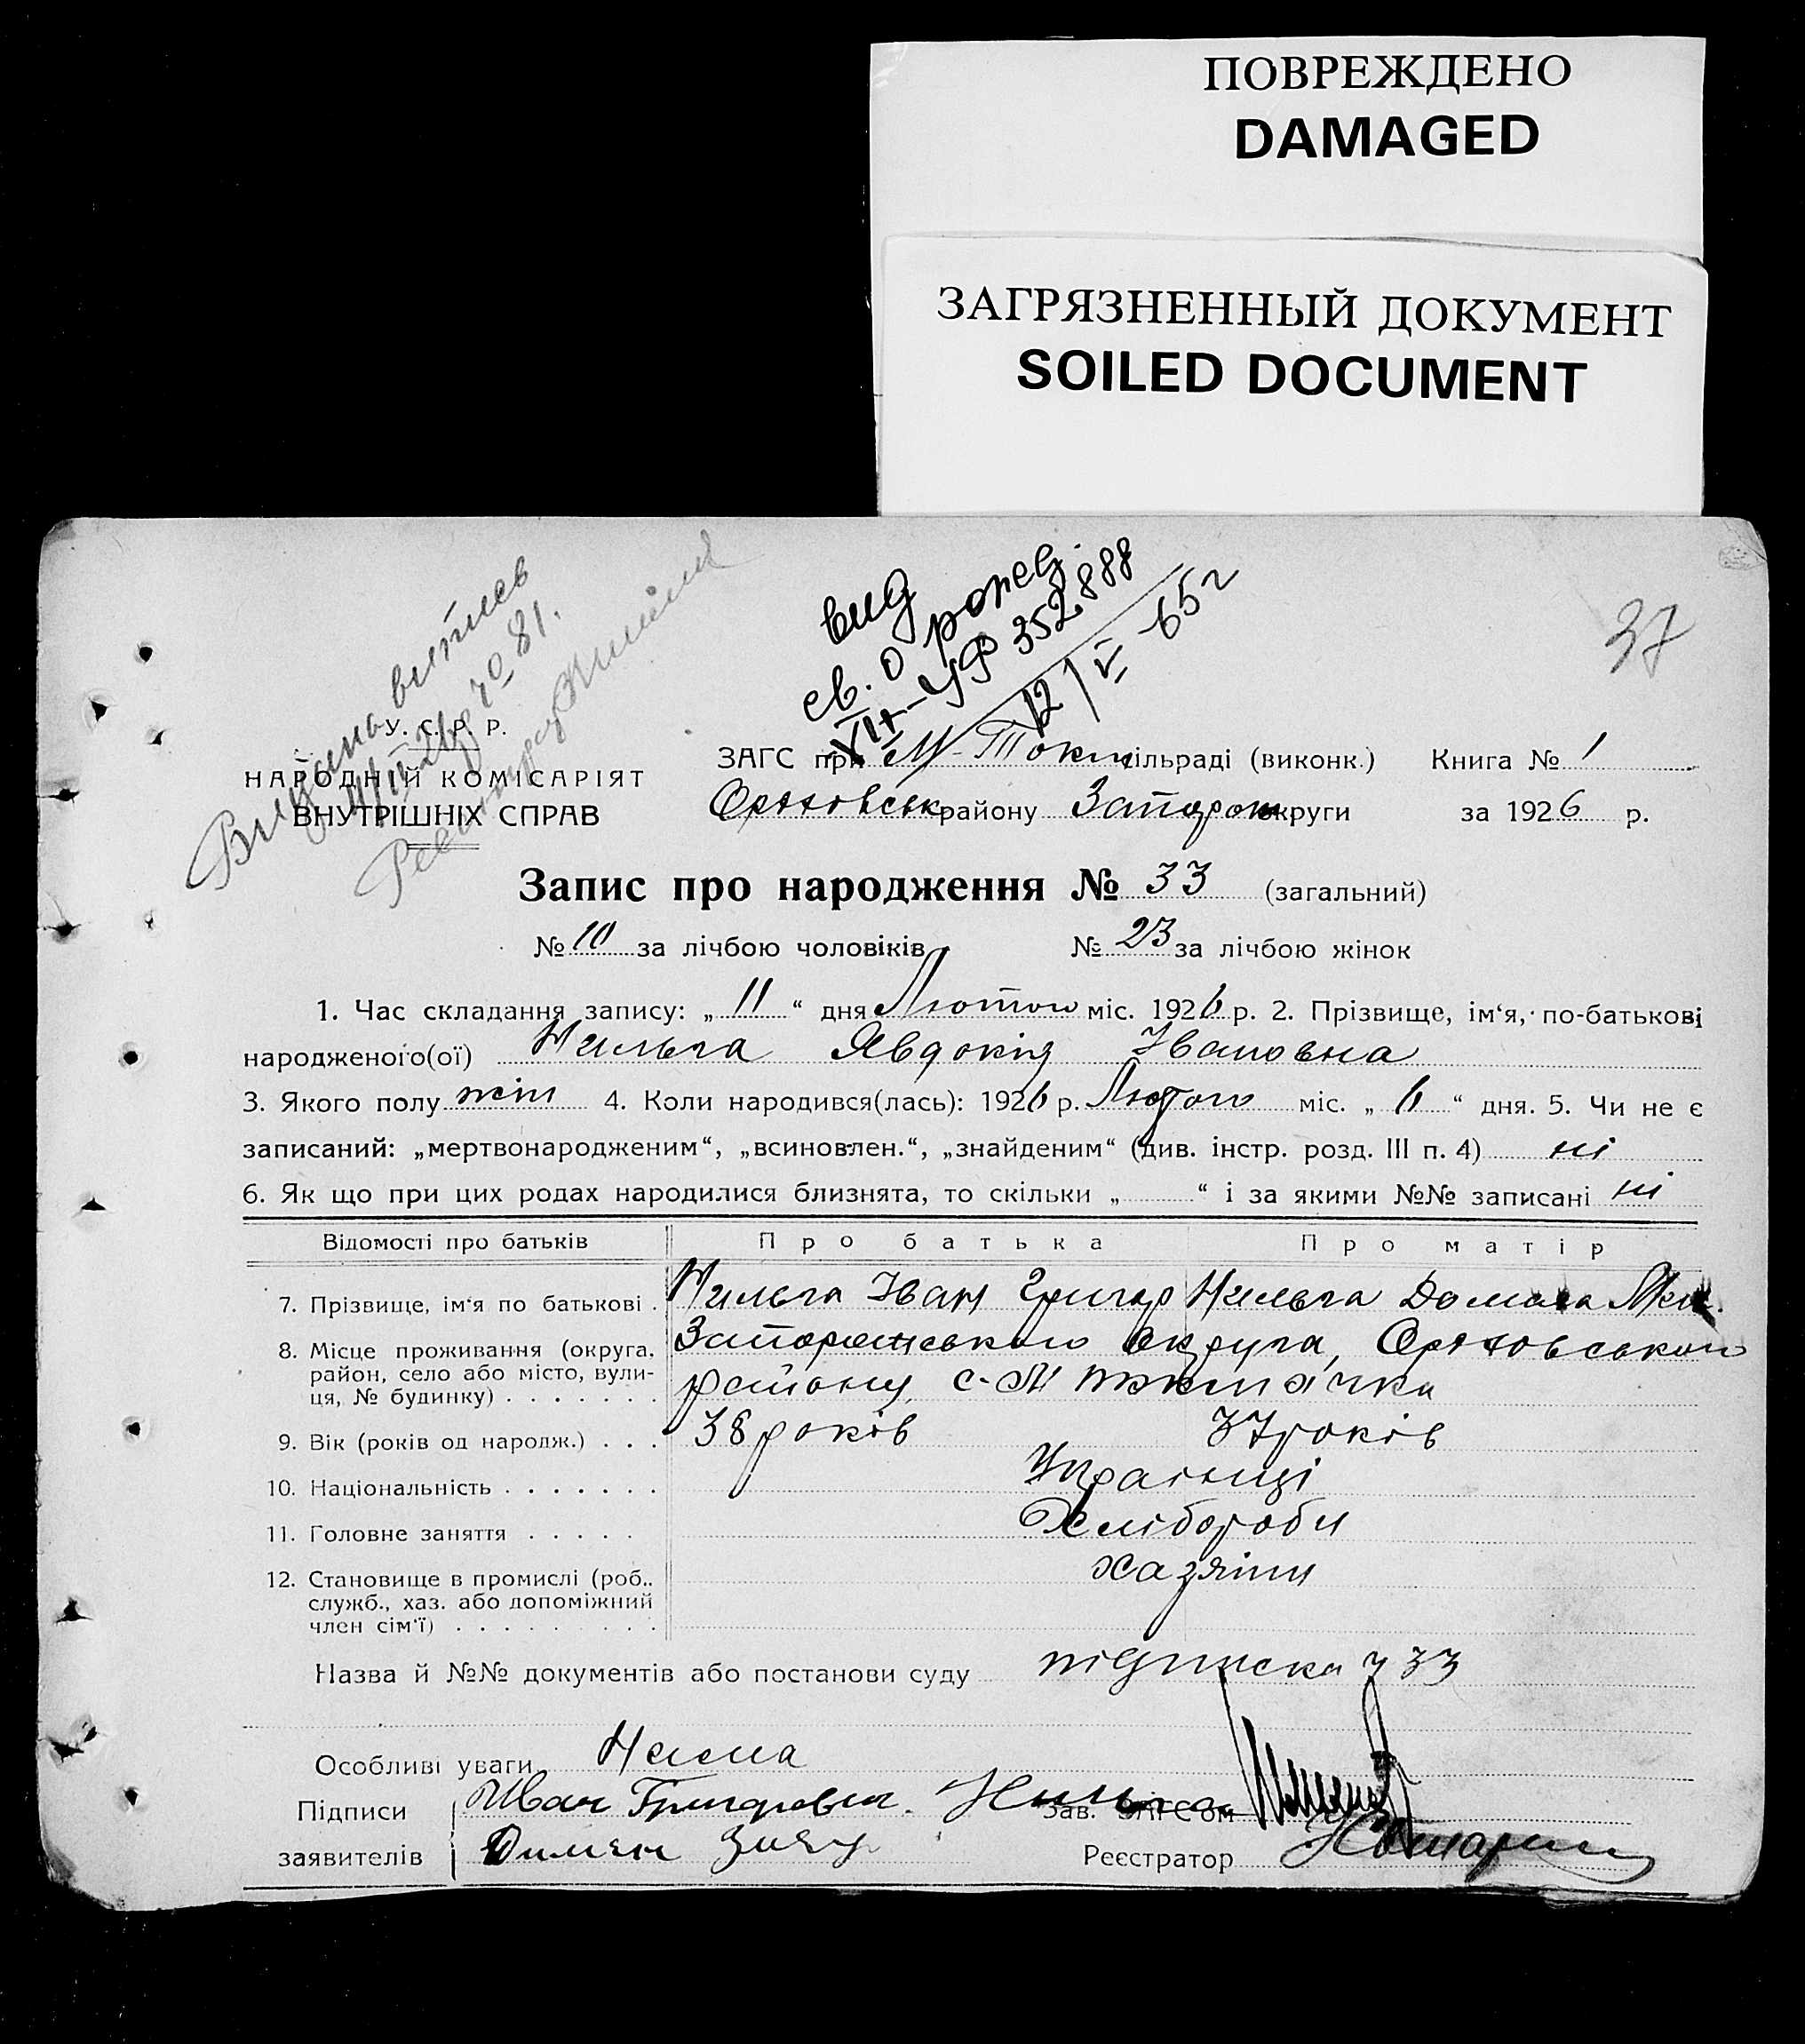 ПОВРЕЖДЕНО
DAMAGED
ЗАГРЯЗНЕННЫЙ ДОКУМЕНТ
SOILED DOCUMENT
вид
св. о рожд.
352888
12/V-65г
37
У. С. Р. Р.
НАРОДНІЙ КОМІСАРІЯТ
ВНУТРІШНІХ СПРАВ
ЗАГС при М-Токм сільраді (виконк.) Книга № 1
Оріховськ району Запорож округи за 1926 р.
Запис про народження № 33 (загальний)
№ 10 за лічбою чоловіків № 23 за лічбою жінок
1. Час складання запису: „11“ дня Лютого міс. 1926 р. 2. Прізвище, ім‘я, по-батькові
народженого(ої) Явдокія Івановна
3. Якого полу жін 4. Коли народився(лась): 1926 р. Лютого міс. „6“ дня. 5. Чи не є
записаний: „мертвонародженим“, „всиновлен.“, „знайденим“ (див. інстр. розд. III п. 4) ні
6. Як що при цих родах народилися близнята, то скільки „ “ і за якими №№ записані ні
Відомості про батьків Про батька Про матір
7. Прізвище, ім‘я по батькові . Іван Григор Домаха
8. Місце проживання (округа, Запорожського округа, Оріховського
район, село або місто, вули- району, с-М Токмачка
ця, № будинку) . . . . . . .
9. Вік (років од народж.) . . . 38 років 37 років
10. Національність . . . . . . . Українці
11. Головне заняття . . . . . Хлібороби
12. Становище в промислі (роб., хазяіни
служб., хаз. або допоміжний
член сім‘ї) . . . . . . . . .
Назва й №№ документів або постанови суду підписка 33
Особливі уваги Нема
Підписи Іван Григорович
Зав. ЗАГС‘ом
заявителів
Реєстратор